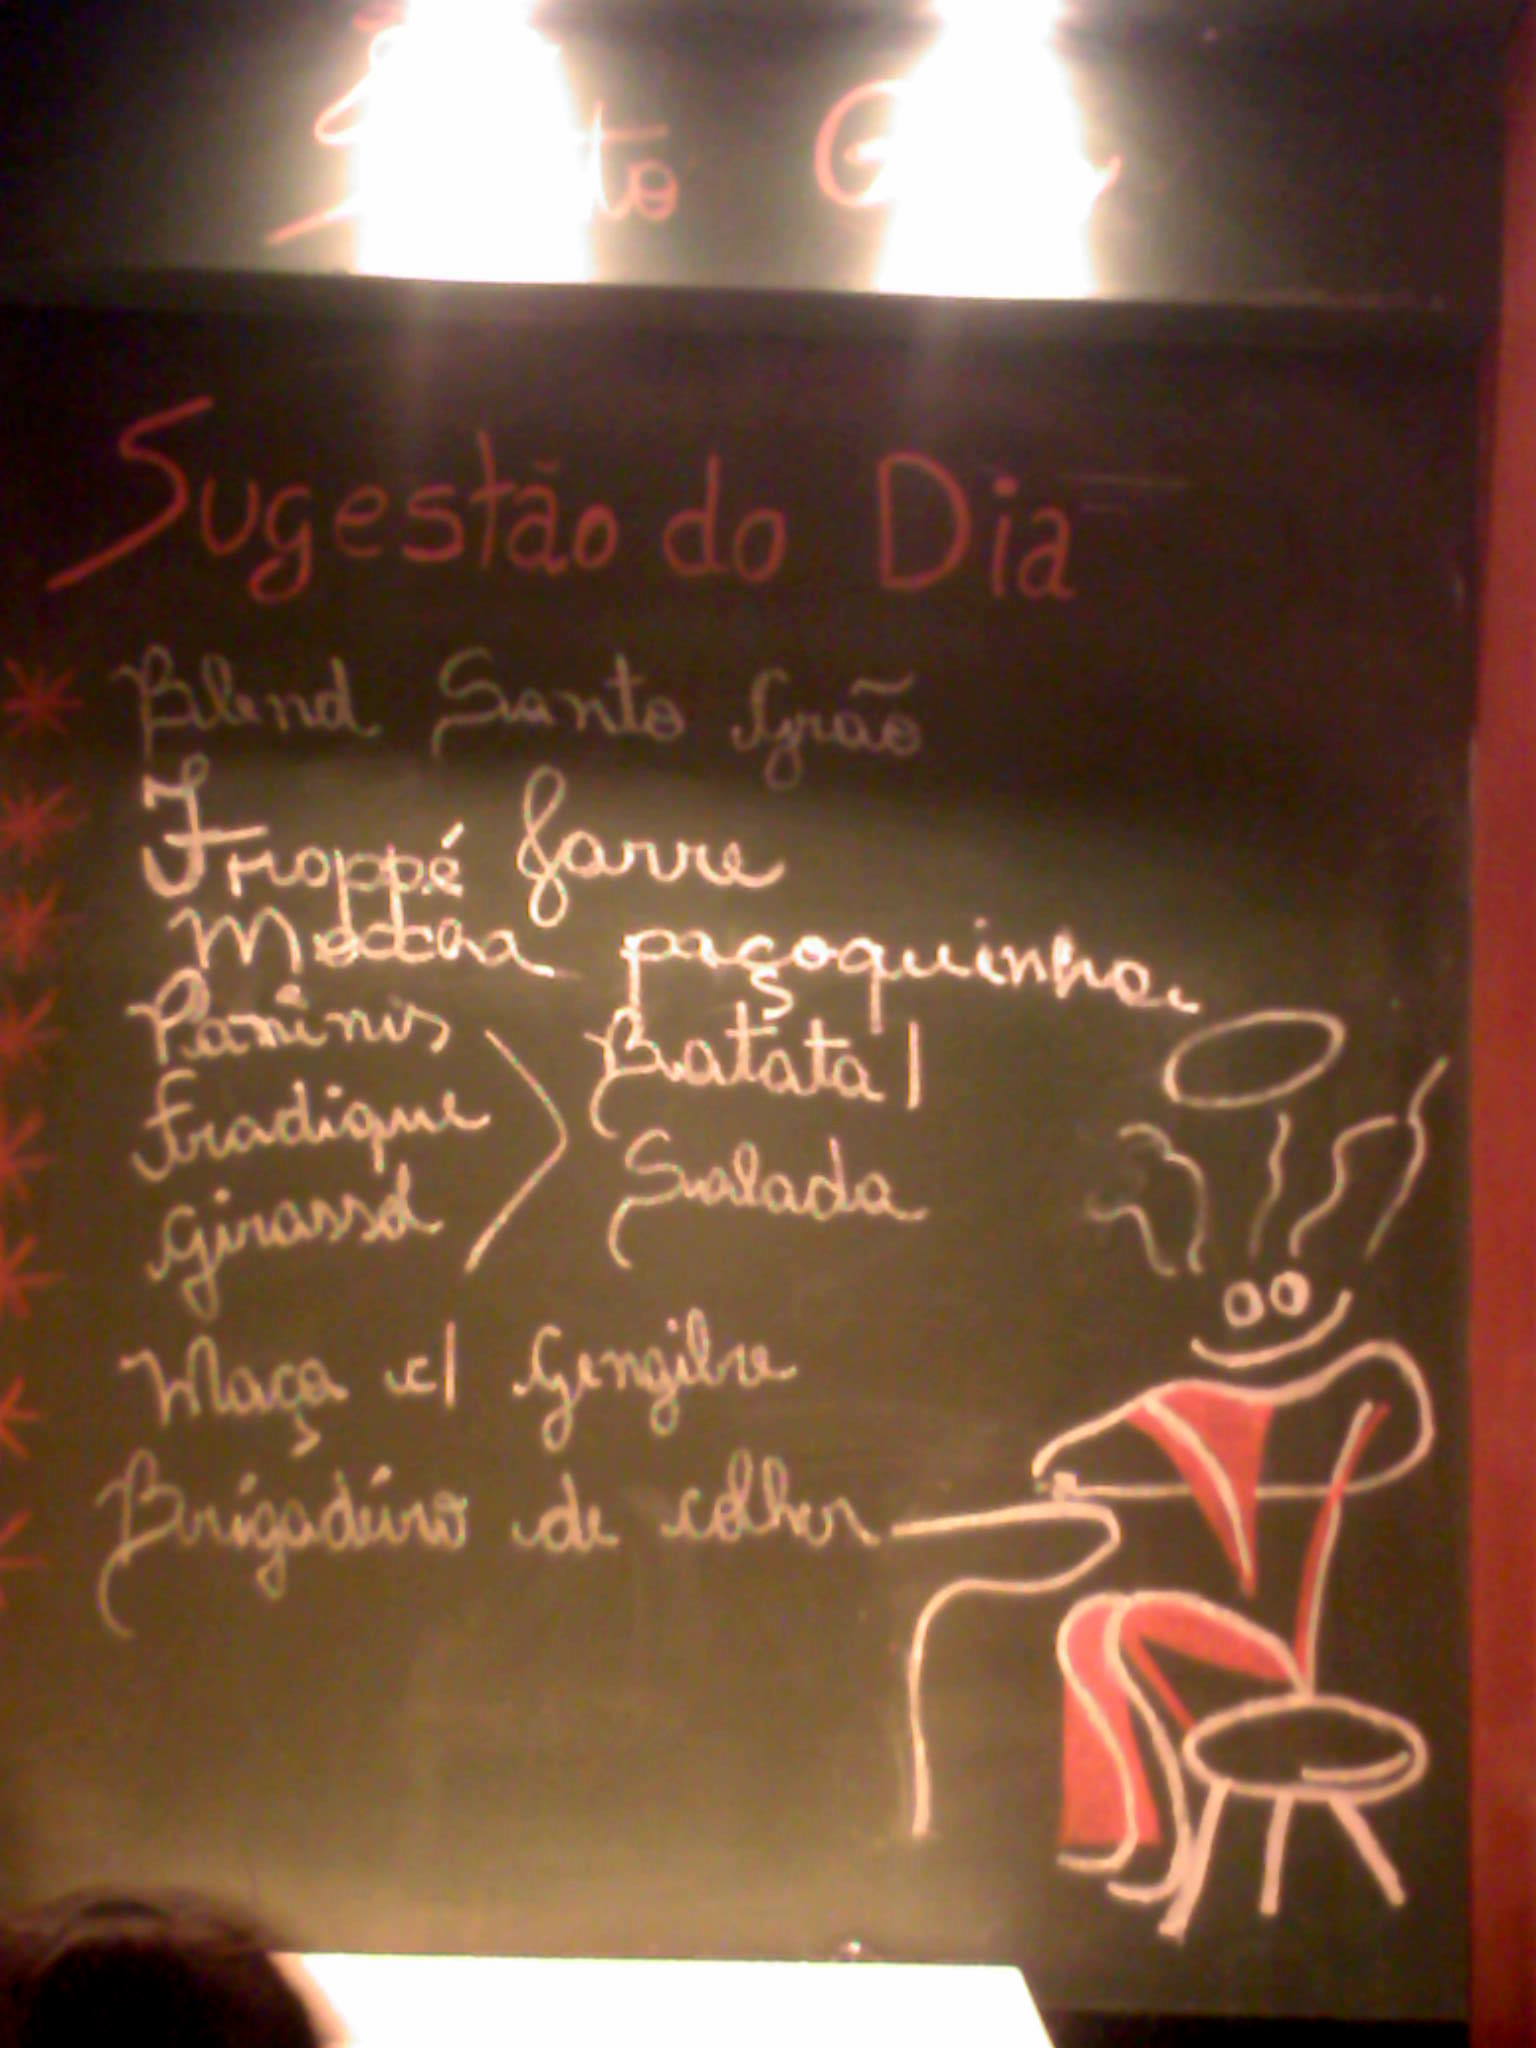 Sugestão do Dia
Blend Santo Grão
Froppé farre
Moccha paçoquinha
Paninis
Fradique
Girassol
Batata |
Salada
Maça c/ Gengibre
Brigadeiro de colher